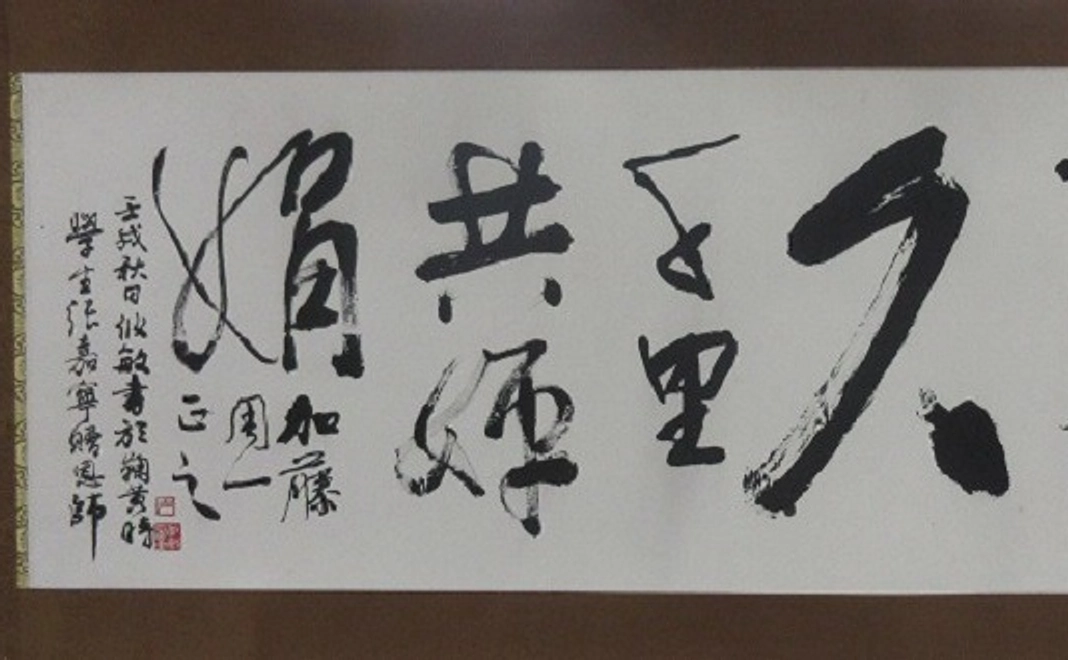 久
千里
共嬋
娟
加藤
周一
正之
壬戌秋日似敏書於鞠黄時
學生張嘉寧贈恩師